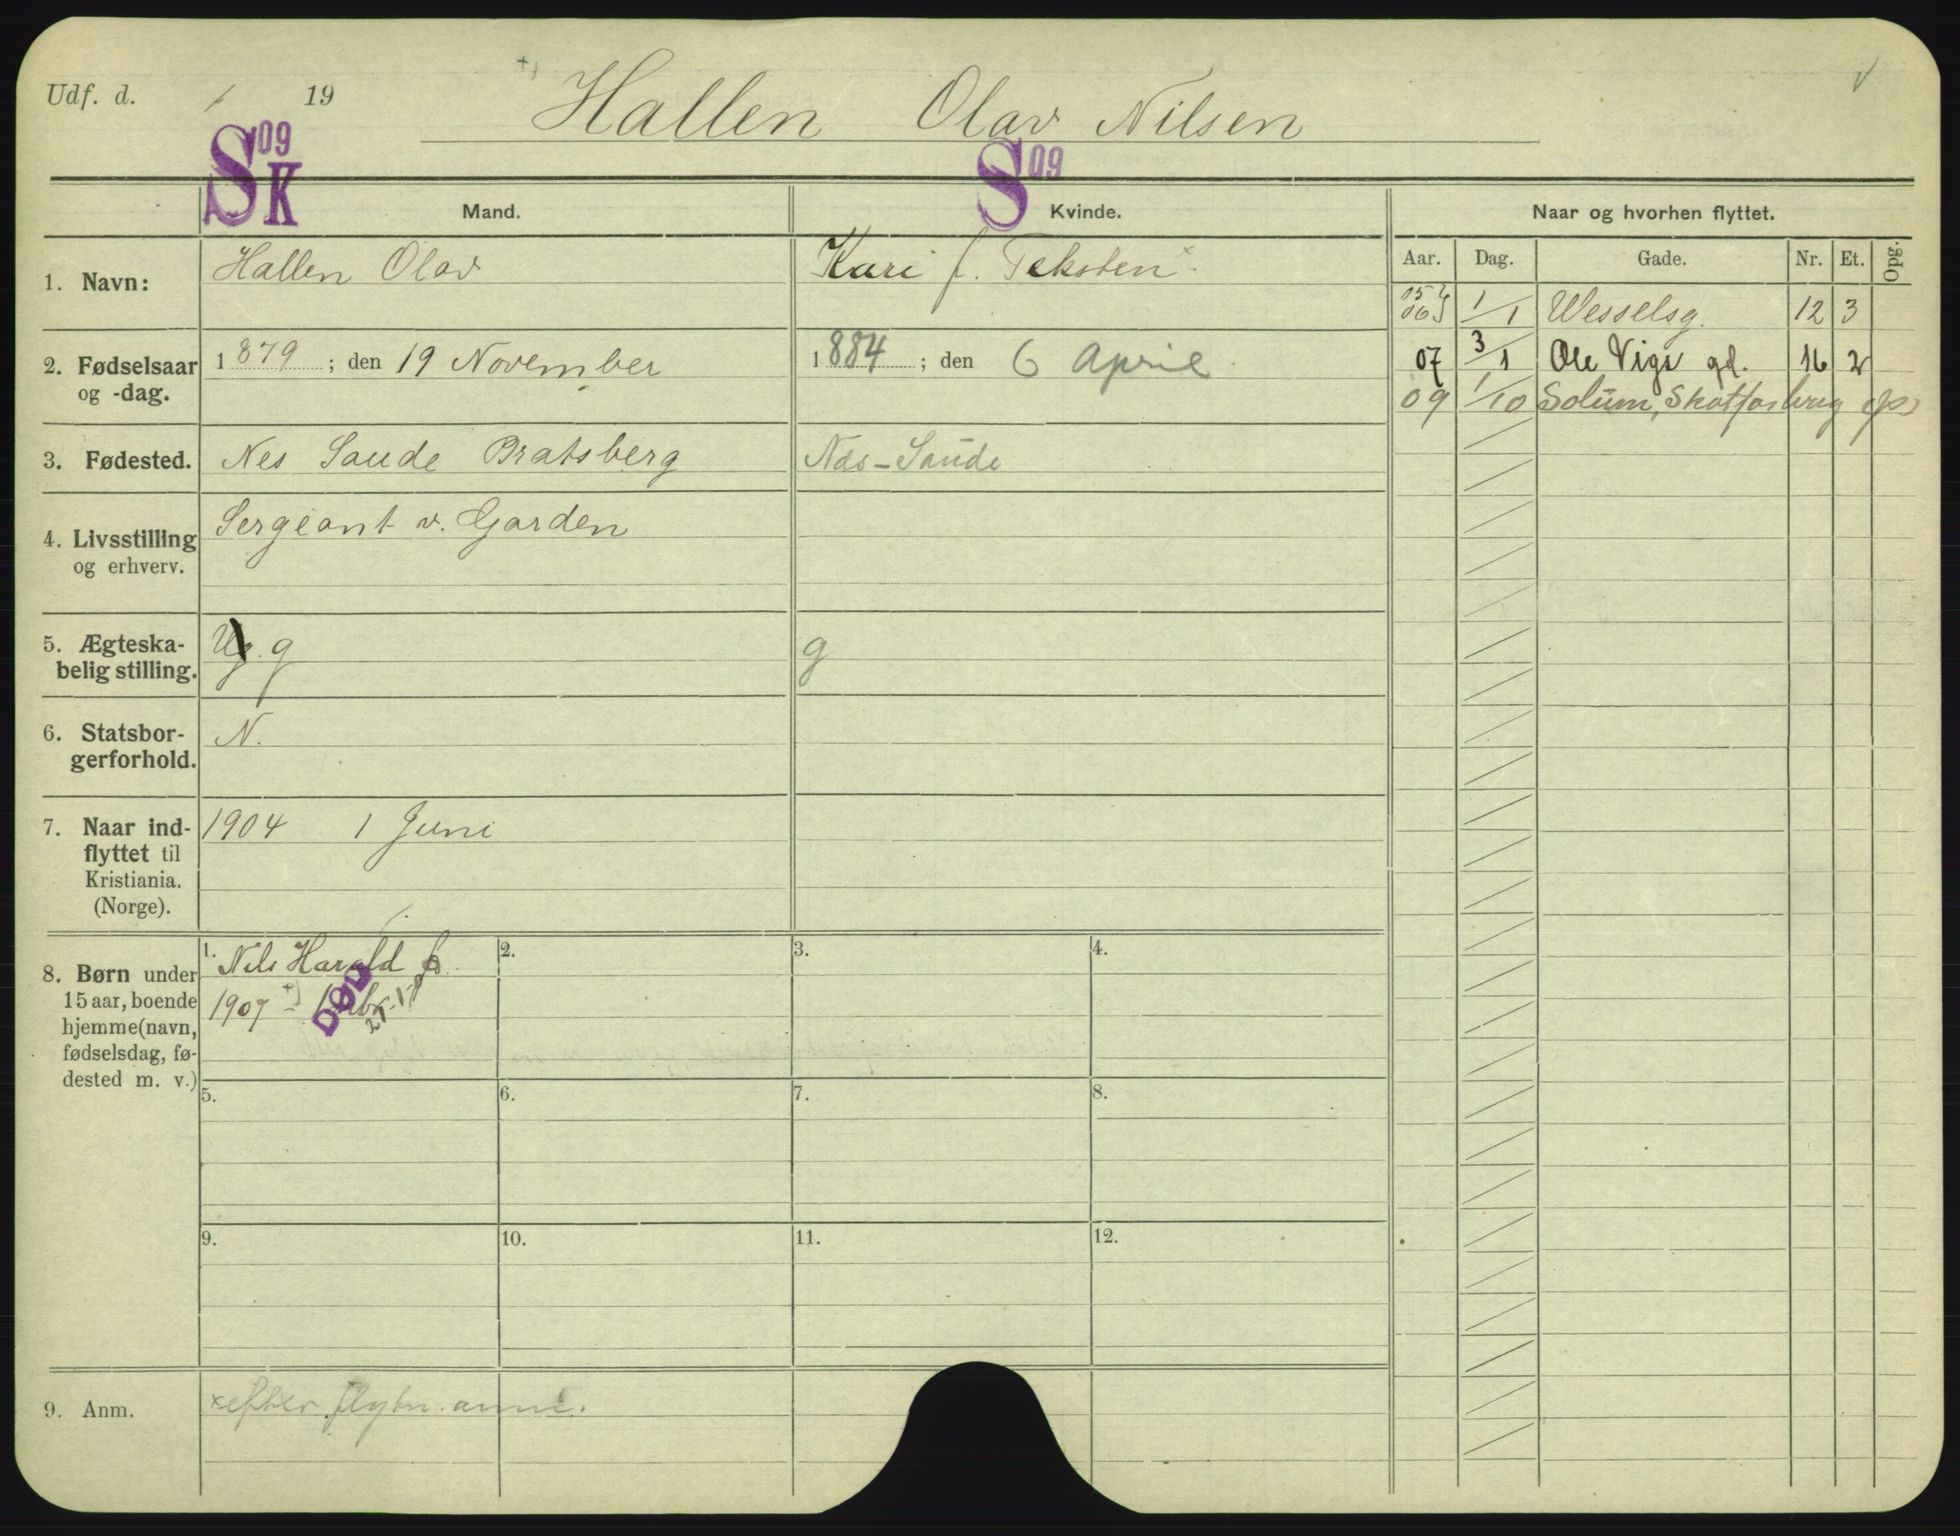 Udf. d. / 19 Hallen Olav Nilsen
S 09 K S 09
Mand. Kvinde. Naar og hvorhen flyttet.
Aar. Dag. Gade. Nr. Et. Opg.
1. Navn: Hallen Olav Kari f. Teksten x
05 06 1/1 Wesselsg. 12 3
2. Fødselsaar og -dag. 1879; den 19 November 1884; den 6 April
07 3/1 Ole Vigs gd. 16 2
09 1/10 Solum, Skotfosbrug
3. Fødested. Nes Saude Bratsberg Næs-Saude
4. Livsstilling og erhverv. Sergeant v. Garden
5. Ægteska-
belig stilling. Ug. g g
6. Statsbor-
gerforhold. N.
7. Naar ind-
flyttet til
Kristiania.
(Norge).
1904 1 Juni
8. Børn under
15 aar, boende
hjemme (navn,
fødselsdag, fø-
dested m. v.)
1. Nils Harald
1907
DØD
2. 3. 4.
5. 6. 7. 8.
9. 10. 11. 12.
9. Anm. x efter flytn. anm.